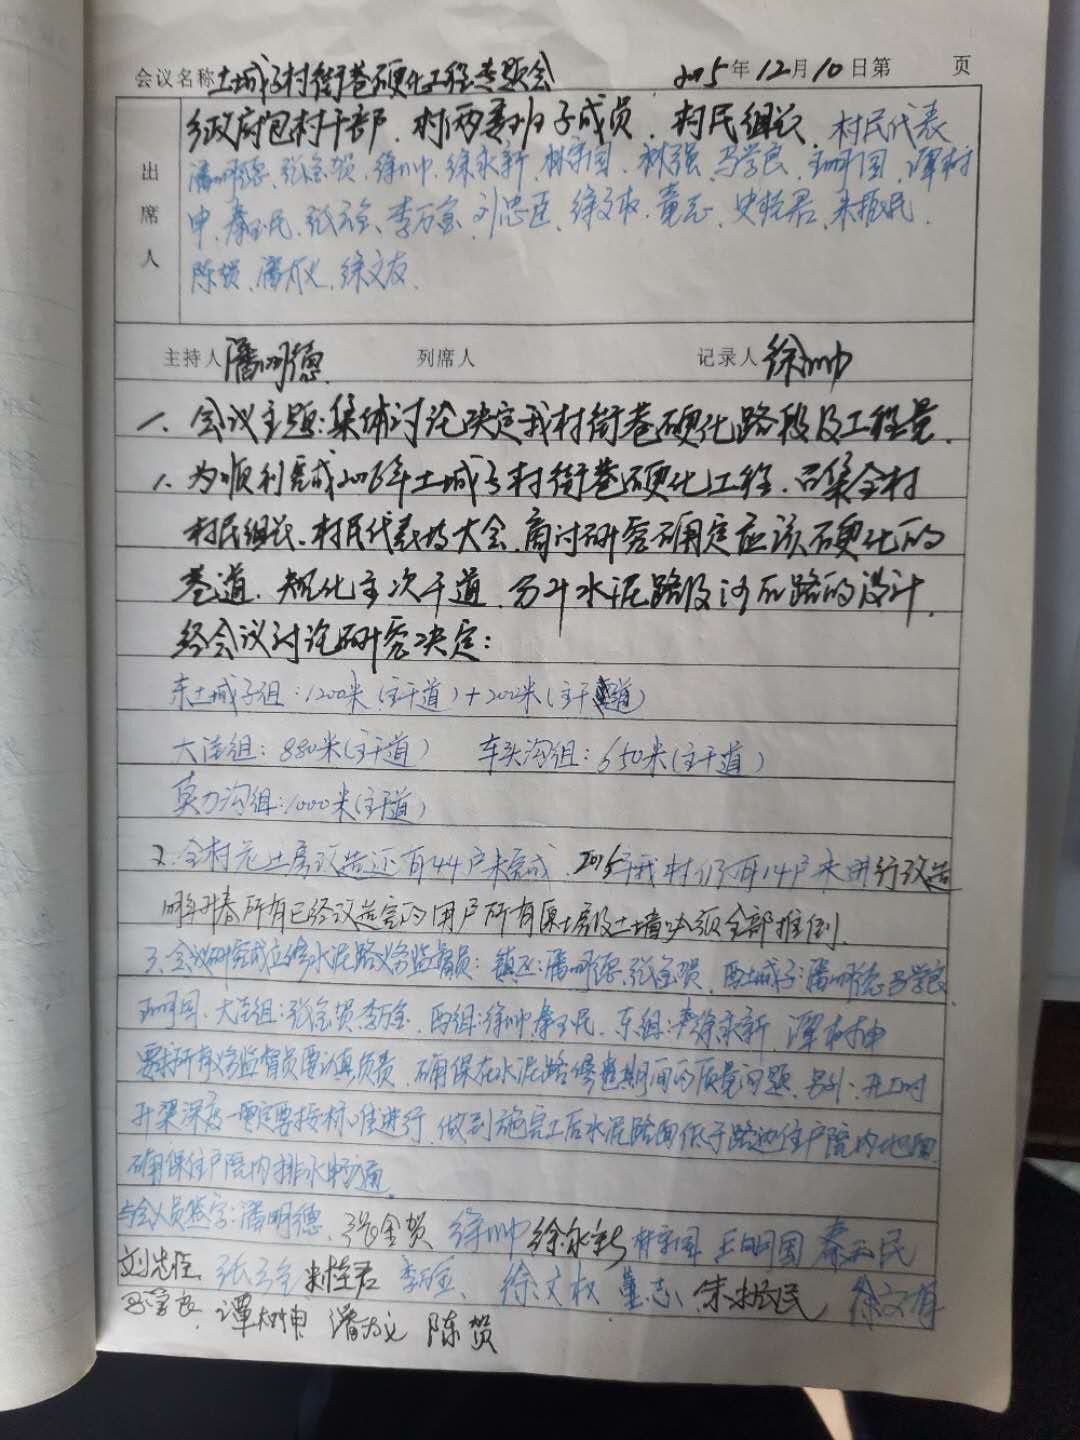 会议名称 土城子村街巷硬化工程专题会 2015年12月10日第 页
出席人
乡政府包村干部、村两委班子成员、村民组长、村民代表
潘明德、张金贺、徐帅、徐永新、林宗国、林强、马学良、王明国、谭树
申、秦玉民、张云金、李万金、刘忠臣、徐文权、董志、史桂君、朱振民、
陈贺、潘有义、徐文友、
主持人 潘明德 列席人 记录人 徐帅
一、会议主题:集体讨论决定我村街巷硬化路段及工程量、
1、为顺利完成2016年土城子村街巷硬化工程、召集全村
村民组长、村民代表大会、商讨研究确定应该硬化的
巷道、规化主次干道、另外水泥路及沙石路的设计、
经会议讨论研究决定:
东土城子组:1200米(主干道)+200米(主干道)
大洼组:880米(主干道) 车头沟组:650米(主干道)
莫力沟组:1000米(主干道)
2、全村危土房改造还有44户未完成、2015年我村仍有14户未进行改造
明年开春所有已经改造完的用户所有原土房及土墙必须全部推倒、
3、会议研究成立修水泥路义务监督员:镇区:潘明德、张金贺、西土城子:潘明德、马学良
王明国、大洼组:张金贺、李万金、西组:徐帅、秦玉民、东组:徐永新、谭树申
要求所有义务监督员要认真负责、确保在水泥路修整期间的质量问题、另外、开工时
开梁深度一定要按标准进行、做到施完工后水泥路面低于路边住户院内地面
确保住户院内排水畅通。
与会人员签字:潘明德、张金贺 徐帅 徐永新 林宗国 王明国 秦玉民
刘忠臣、张云金 史桂君 李万金、徐文权 董志、朱振民 徐文有
马学良、谭树申 潘有义 陈贺